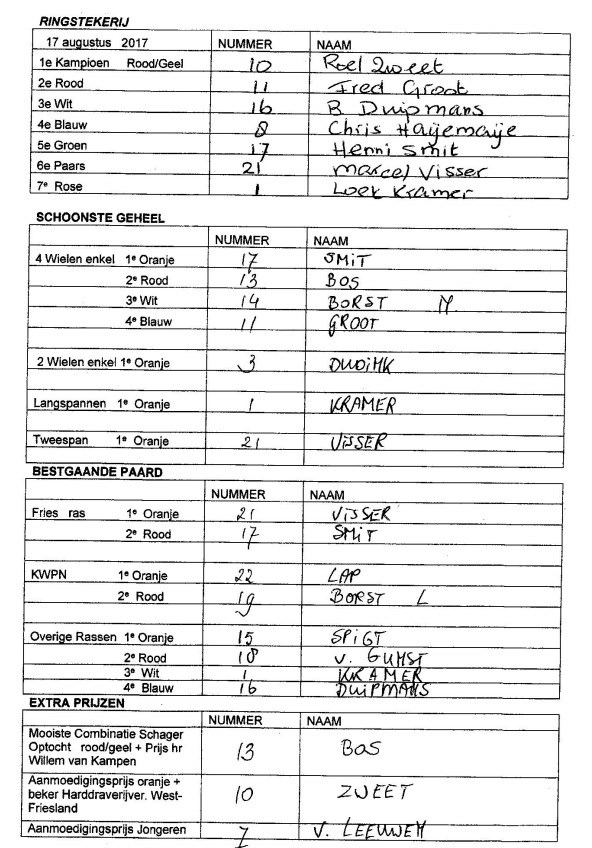 RINGSTEKERIJ
17 augustus 2017 NUMMER NAAM
1e Kampioen Rood/Geel 10 Roel Zweet
2e Rood 11 Fred Groot
3e Wit 16 R Duipmans
4e Blauw 8 Chris Haijemaije
5e Groen 17 Henni Smit
6e Paars 21 Marcel Visser
7e Rose 1 Loek Kramer
SCHOONSTE GEHEEL
NUMMER NAAM
4 Wielen enkel 1e Oranje 17 SMiT
2e Rood 13 BOS
3e Wit 14 BORST N
4e Blauw 11 GROOT
2 Wielen enkel 1e Oranje 3
Langspannen 1e Oranje 1 KRAMER
Tweespan 1e Oranje 21 ViSSER
BESTGAANDE PAARD
NUMMER NAAM
Fries ras 1e Oranje 21 ViSSER
2e Rood 17 SMiT
KWPN 1e Oranje 22 LAP
2e Rood 19 BORST L
Overige Rassen 1e Oranje 15 SPiGT
2e Rood 18 v. GUNST
3e Wit 1 KRAMER
4e Blauw 16 DUiPMANS
EXTRA PRIJZEN
NUMMER NAAM
Mooiste Combinatie Schager
Optocht rood/geel + Prijs hr
Willem van Kampen 13 BOS
Aanmoedigingsprijs oranje +
beker Harddraverijver. West-
Friesland 10 ZWEET
Aanmoedigingsprijs Jongeren 7 v. LEEUWEN